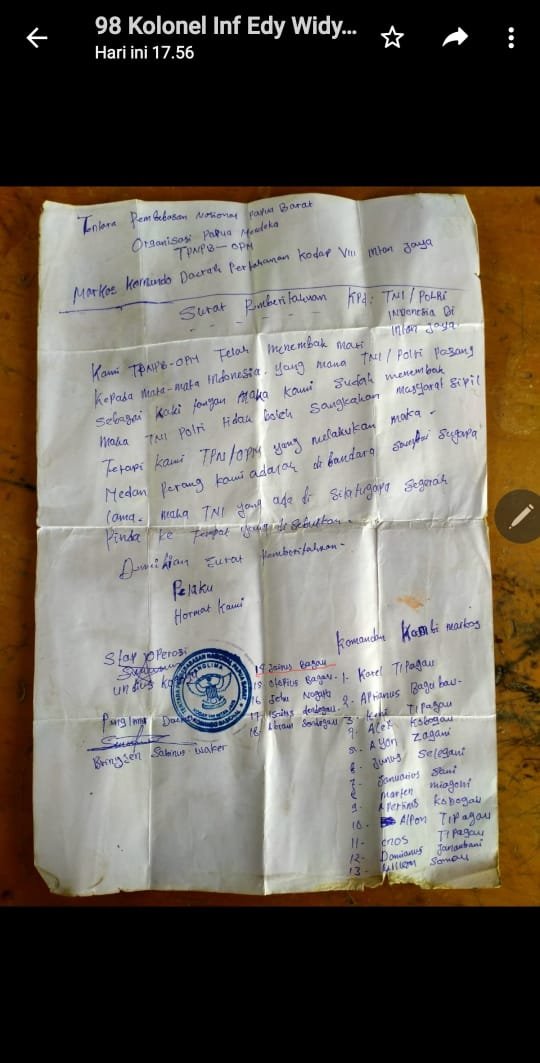 98 Kolonel Inf Edy Widy...
Hari ini 17.56
Tentara Pembebasan Nasional Papua Barat
Organisasi Papua Merdeka
TPNPB-OPM
Markas Komando Daerah Pertahanan Kodap VIII Intan Jaya
Surat Pemberitahuan Kpd: TNI/POLRI
INDONESIA DI
Intan Jaya
Kami TPNPB-OPM Telah menembak mati
Kepada mata-mata Indonesia. yang mana TNI/Polri Pasang
Sebagai Kaki tangan maka Kami Sudah menembak
maka TNI Polri tidak boleh Sangkakan masyarat Sipil
Tetapi Kami TPN/OPM yang melakukan maka-
Medan Perang Kami adalah di bandara Sampai Sugapa
lama- maka TNI yang ada di Segerah
Pinda Ke Tempat yang di Sebutkan-
Demikian Surat Pemberitahuan-
Pelaku
Hormat Kami
Komandan markas
Staf Operasi
Undius
Daerah
Sabinus Waker
PANGLIMA
14 Bagau
15 Bagau-
16
17
18- Abram
1- Karel TIPagau
2- Aprianus Bagubau-
3- TIPagau
4- Alek Kobogau
5- Zagani
6- Junus Selegani
7- Januarius Sani
8 marten miagoni
9- Kobogau
10- Alpon TIPagau
11- enos TIPagau
12- Damianus
13-